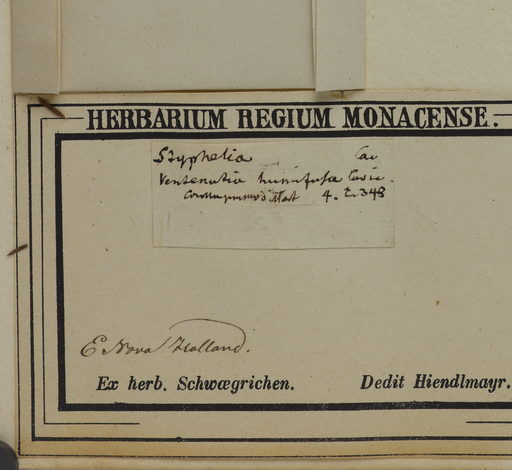 HERBARIUM REGIUM MONACENSE.
Styphelia Cav
Ventenatia humifusa Cavan.
4. t. 348
E Nova Holland.
Ex herb. Schwægrichen. Dedit Hiendlmayr.